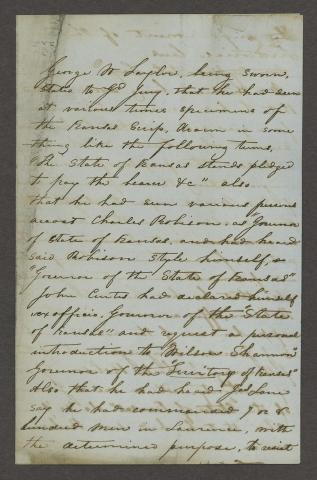 George W Taylor, being sworn,
states to Gd Jury, that he had seen
at various times specimens of
the Kansas Scrip, drawn in some
thing like the following terms,
"the State of Kansas stands pledged
to pay the bearer &c" also
that he had seen various persons
accost Charles Robison, as Governor
of State of Kansas, and had heard
said Robison style himself, as
"Governor of the State of Kansas"
John Curtis had declared himself
ex officio Governor of the "State
of Kansas" and a personal
introduction to Wilson Shannon
Governor of the "Territory of Kansas"
Also that he had heard Lane
say he had commanded 7 or 8
hundred men in Laurence, with
the determined purpose, to resist